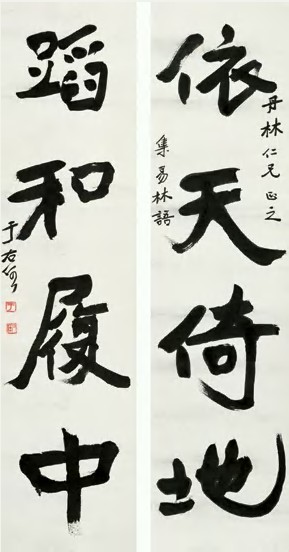 丹林仁兄正之
依天倚地
集易林語
蹈和履中
于右任